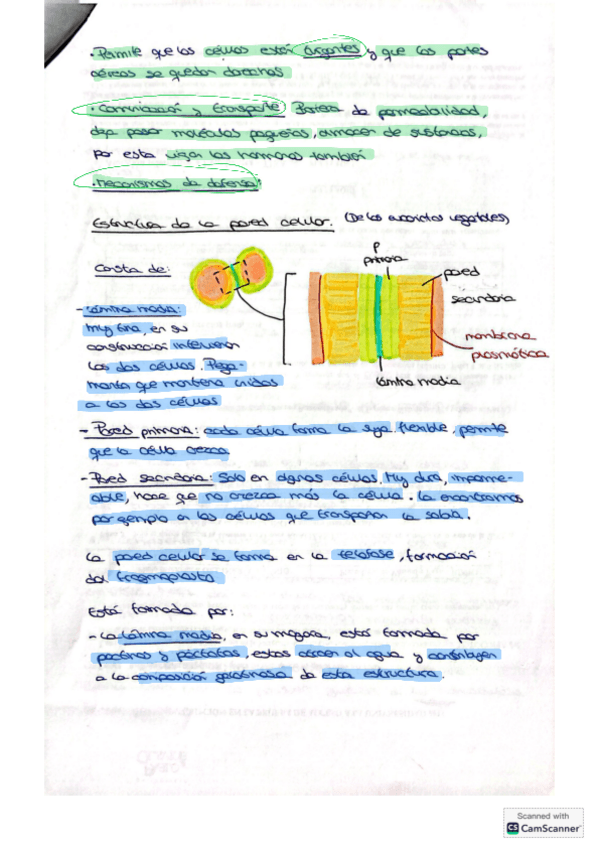 · Permite que las células estén turgentes y que las partes
aéreas se queden derechas
· Comunicación y transporte. Pared de permeabilidad,
deja pasar moléculas pequeñas, almacén de sustancias,
por esta viajan las hormonas también
· Mecanismos de defensa:
Estructura de la pared celular. (De los vegetales)
Consta de:
P
primaria
pared
secundaria
membrana
plasmática
lámina media
- Lámina media:
Muy fina, en su
constitución intervienen
las dos células. Pega-
mento que mantiene unidas
a las dos células
- Pared primaria: cada célula forma la suya. flexible, permite
que la célula crezca
- Pared secundaria: Solo en algunas células. Muy dura, imperme-
able, hace que no crezca más la célula. La encontramos
por ejemplo en las células que transportan la savia.
La pared celular se forma en la telofase, formación
del fragmoplasto
Está formada por:
- La lámina media, en su mayoría, está formada por
pectinas y pectatos, estas atraen al agua y contribuyen
a la composición gelatinosa de esta estructura.
Scanned with
CS CamScanner